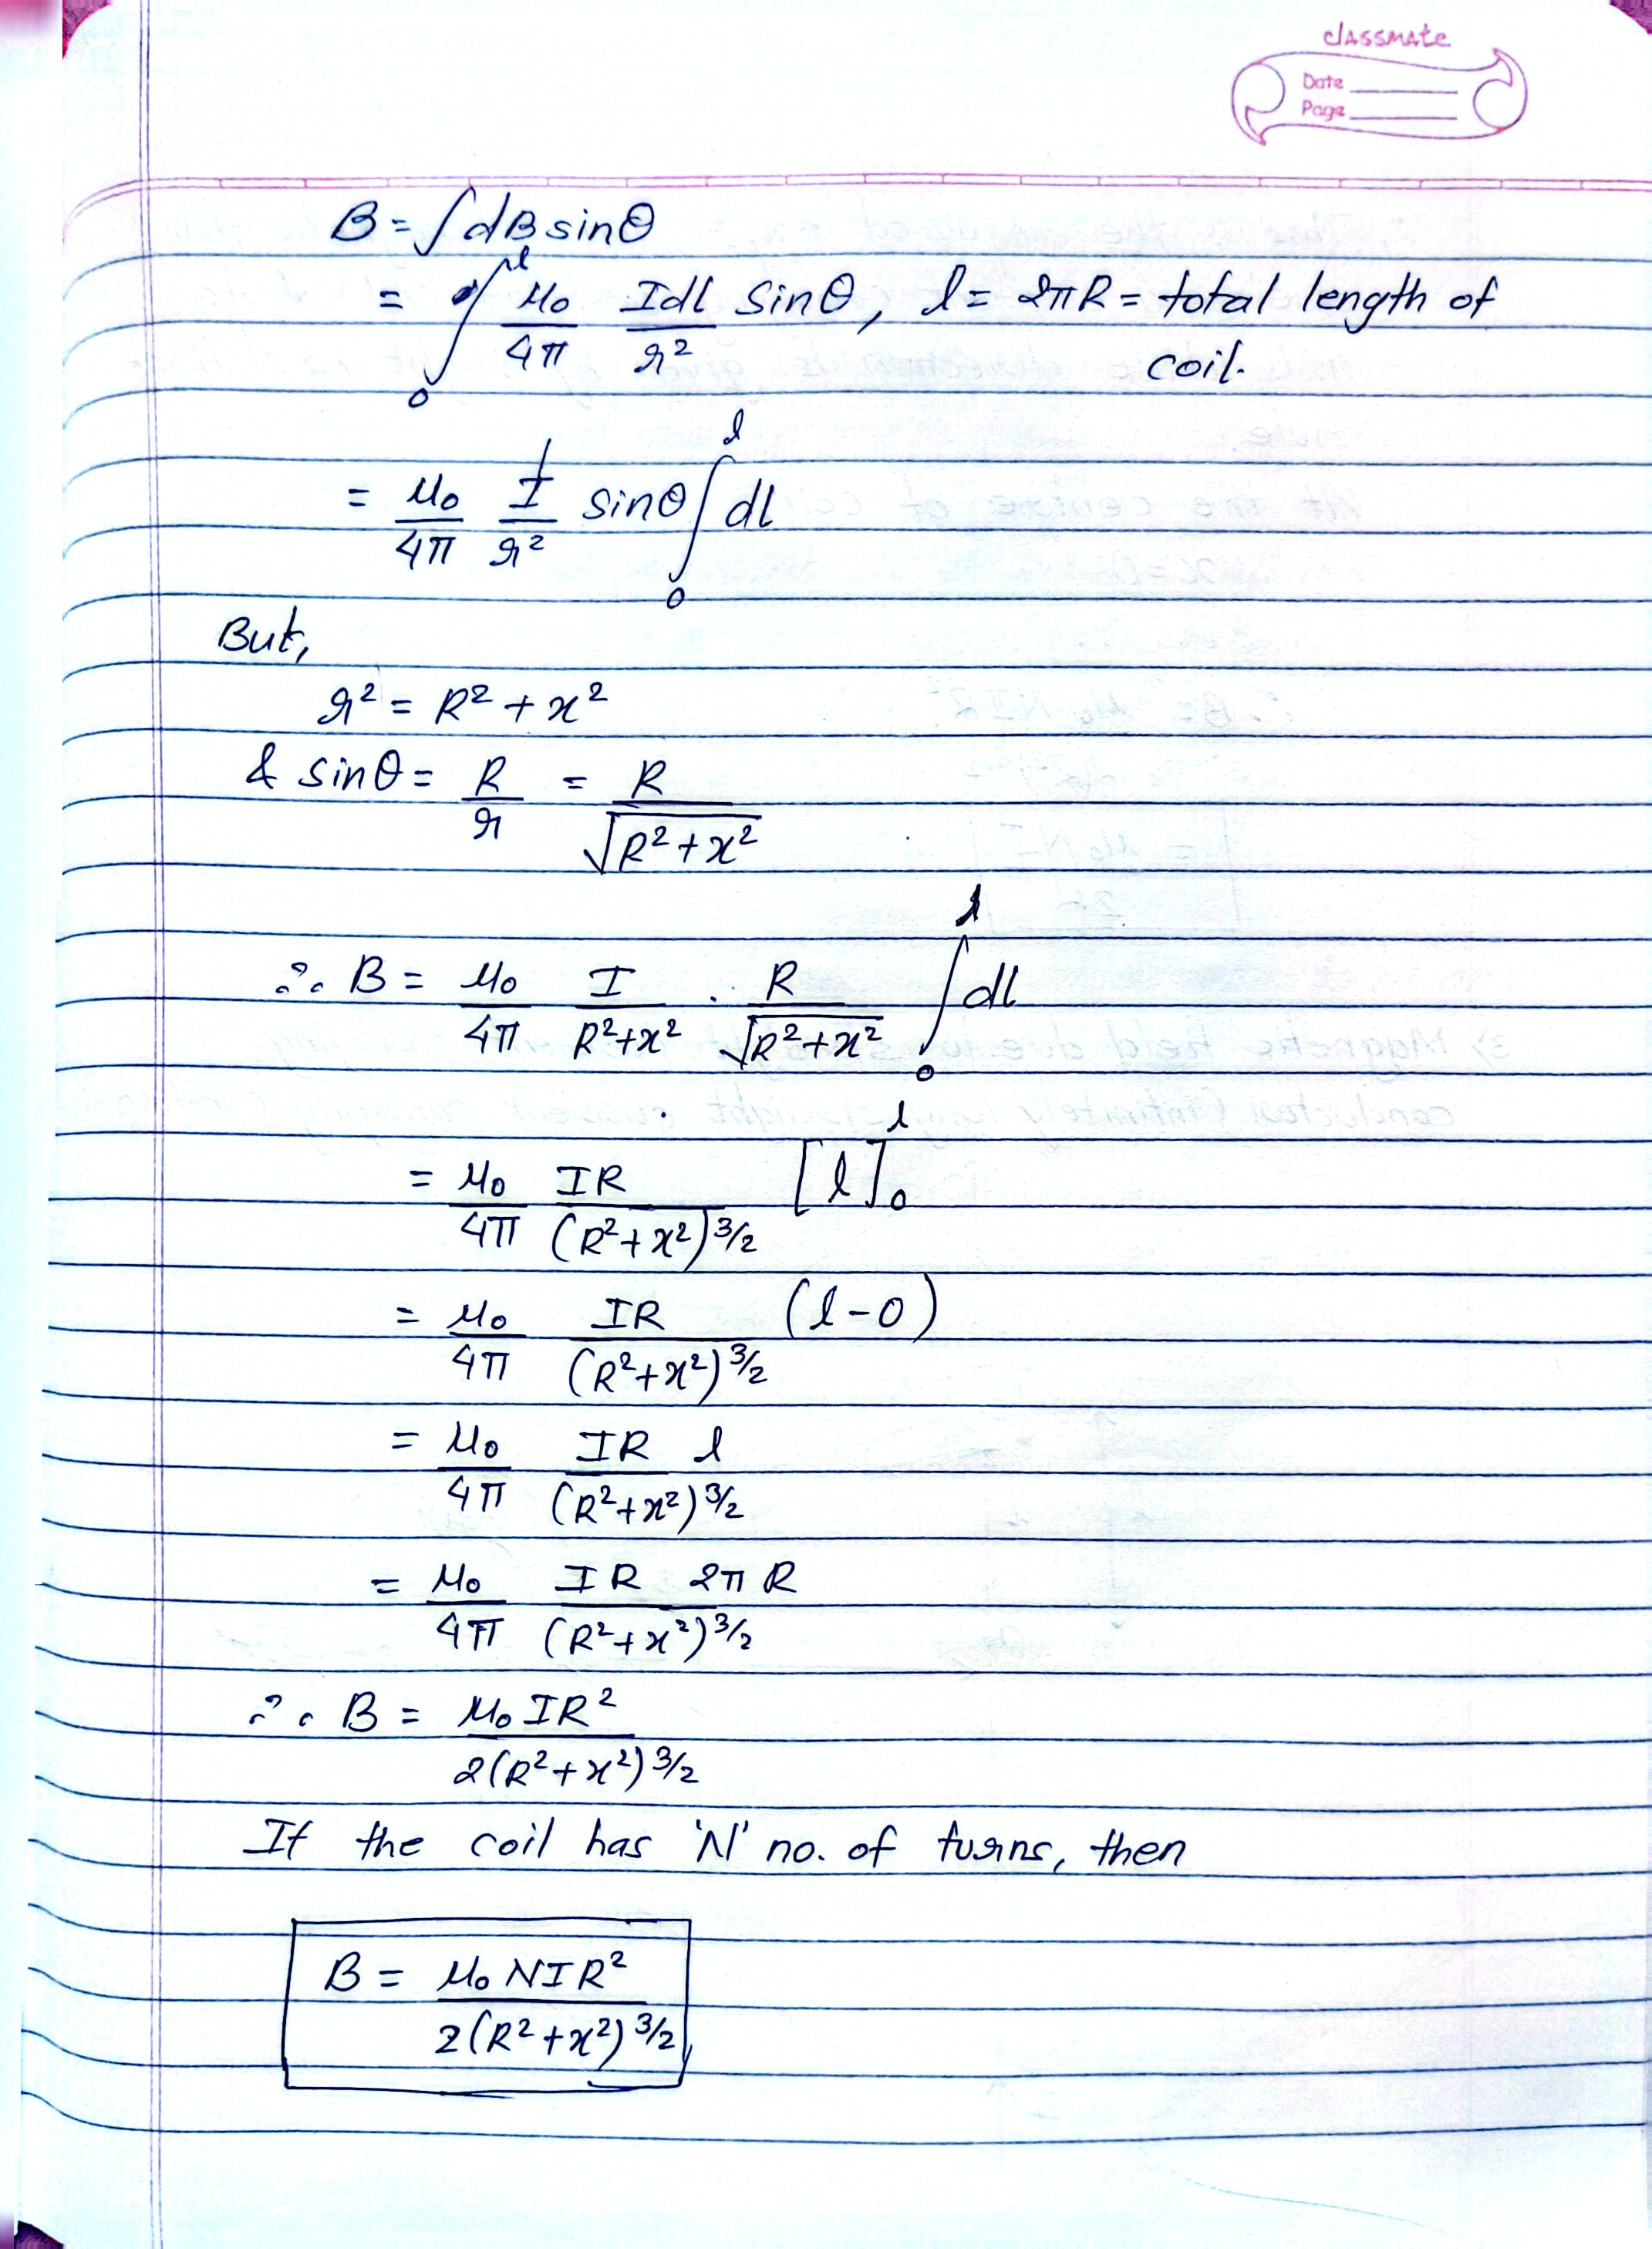 classmate
Date
Page
B = ∫ dB sinθ
= ∫₀ˡ μ₀/4π Idl/r² sinθ, l = 2πR = total length of
coil.
= μ₀/4π I/r² sinθ ∫₀ˡ dl
But,
r² = R² + x²
& sinθ = R/r = R/√(R²+x²)
∴ B = μ₀/4π I/(R²+x²) · R/√(R²+x²) ∫₀ˡ dl
= μ₀/4π IR/(R²+x²)^3/2 [l]₀ˡ
= μ₀/4π IR/(R²+x²)^3/2 (l-0)
= μ₀/4π IR l/(R²+x²)^3/2
= μ₀/4π IR 2πR/(R²+x²)^3/2
∴ B = μ₀IR²/2(R²+x²)^3/2
If the coil has 'N' no. of turns, then
B = μ₀NIR²/2(R²+x²)^3/2